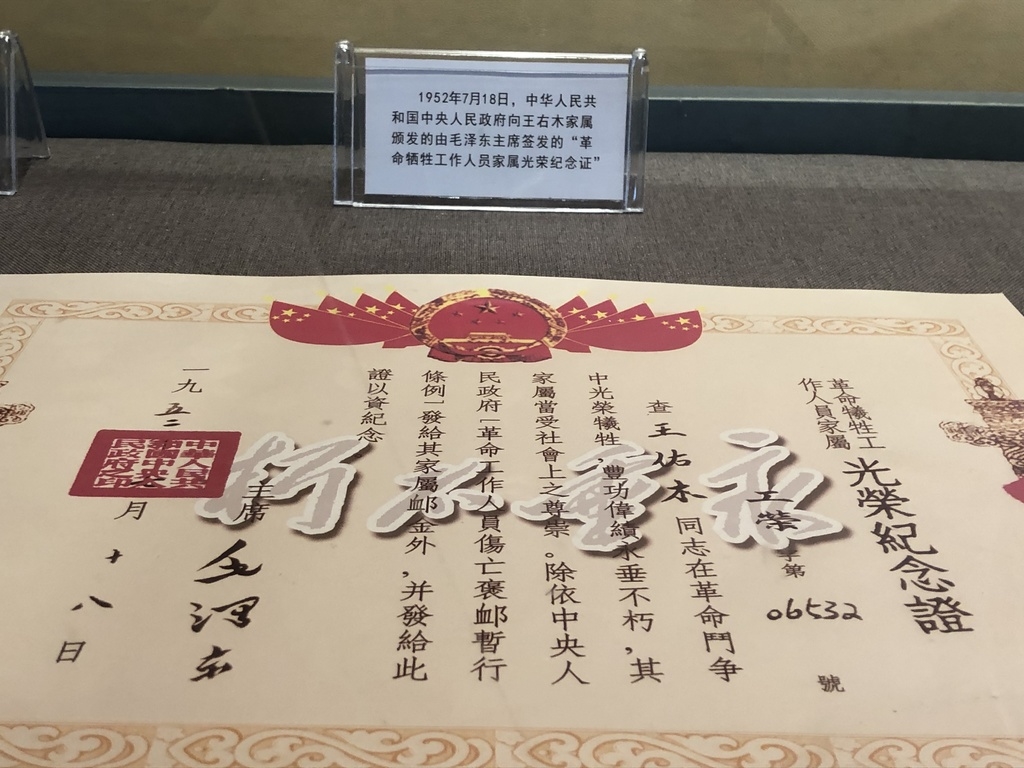 1952年7月18日，中华人民共
和国中央人民政府向王右木家属
颁发的由毛泽东主席签发的“革
命牺牲工作人员家属光荣纪念证”
革命犧牲工
作人員家屬
光榮紀念證
工榮字第06532號
永垂不朽
查王佑木同志在革命鬥爭
中光榮犧牲，豐功偉績永垂不朽，其
家屬當受社會上之尊崇。除依中央人
民政府「革命工作人員傷亡褒卹暫行
條例」發給其家屬卹金外，并發給此
證以資紀念
主席毛澤东
中華人民共和國中央人民政府之印
一九五二 月十八日